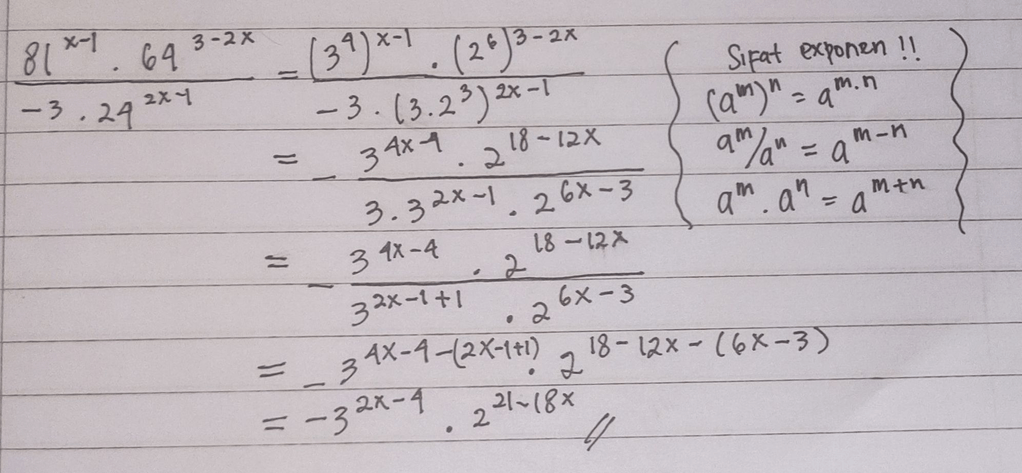 81^(x-1) . 64^(3-2x) / -3 . 24^(2x-1) = (3^4)^(x-1) . (2^6)^(3-2x) / -3 . (3.2^3)^(2x-1)
= - 3^(4x-4) . 2^(18-12x) / 3.3^(2x-1) . 2^(6x-3)
= - 3^(4x-4) . 2^(18-12x) / 3^(2x-1+1) . 2^(6x-3)
= - 3^(4x-4-(2x-1+1)) . 2^(18-12x-(6x-3))
= -3^(2x-4) . 2^(21-18x) //
Sifat exponen !!
(a^m)^n = a^(m.n)
a^m/a^n = a^(m-n)
a^m . a^n = a^(m+n)